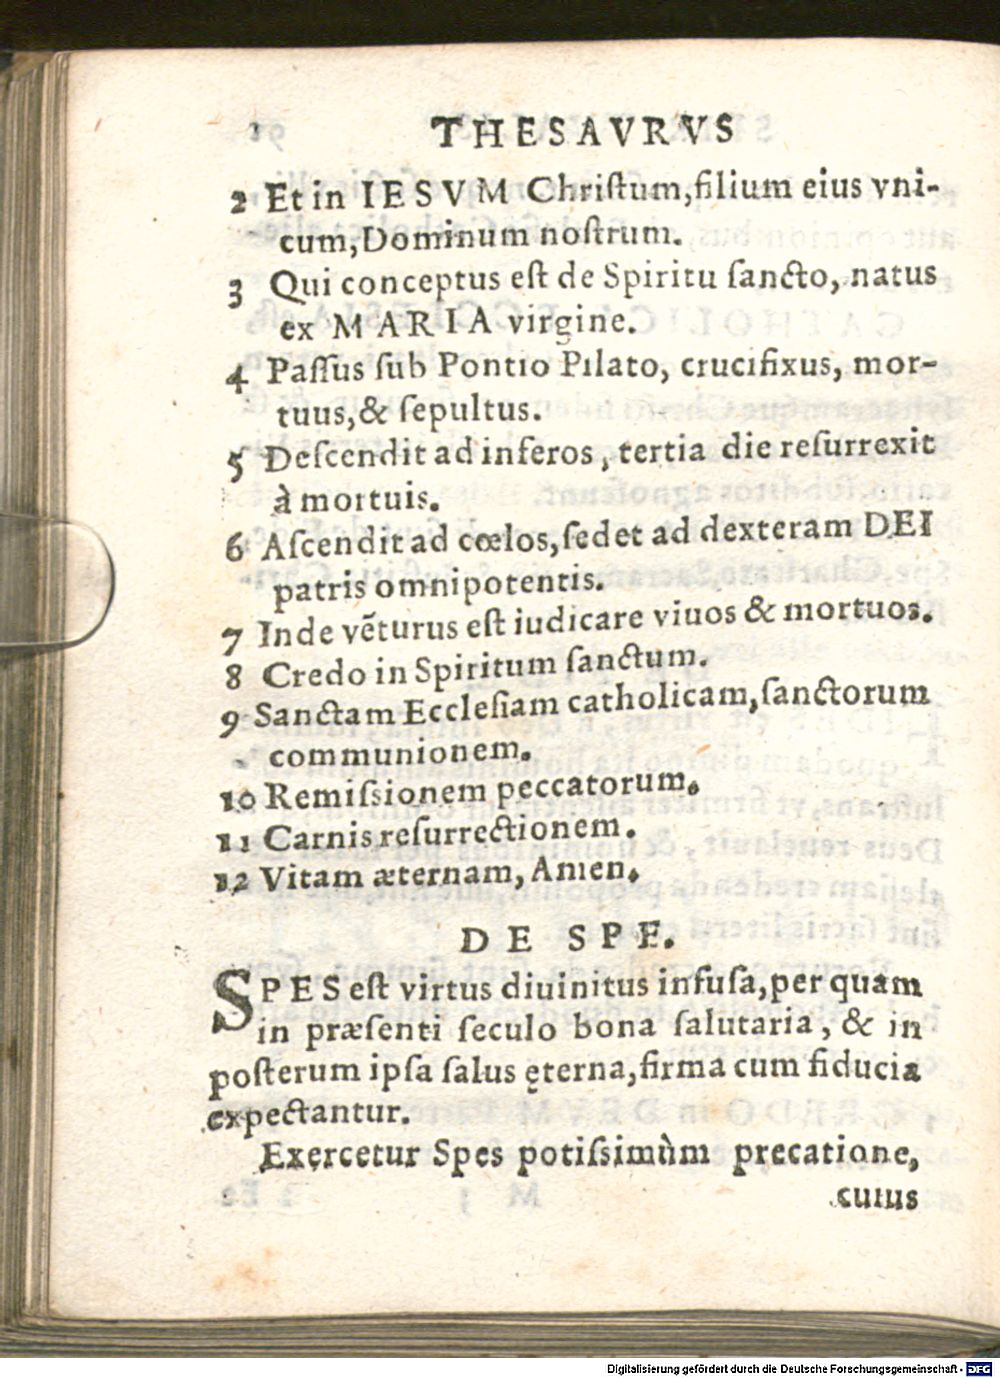 THESAVRVS
2 Et in IESVM Christum, filium eius vni-
cum, Dominum nostrum.
3 Qui conceptus est de Spiritu sancto, natus
ex MARIA virgine.
4 Passus sub Pontio Pilato, crucifixus, mor-
tuus, & sepultus.
5 Descendit ad inferos, tertia die resurrexit
à mortuis.
6 Ascendit ad cœlos, sedet ad dexteram DEI
patris omnipotentis.
7 Inde vẽturus est iudicare viuos & mortuos.
8 Credo in Spiritum sanctum.
9 Sanctam Ecclesiam catholicam, sanctorum
communionem.
10 Remissionem peccatorum.
11 Carnis resurrectionem.
12 Vitam æternam, Amen.
DE SPE.
SPES est virtus diuinitus infusa, per quam
in præsenti seculo bona salutaria, & in
posterum ipsa salus ęterna, firma cum fiducia
expectantur.
Exercetur Spes potissimùm precatione,
cuius
Digitalisierung gefördert durch die Deutsche Forschungsgemeinschaft - DFG